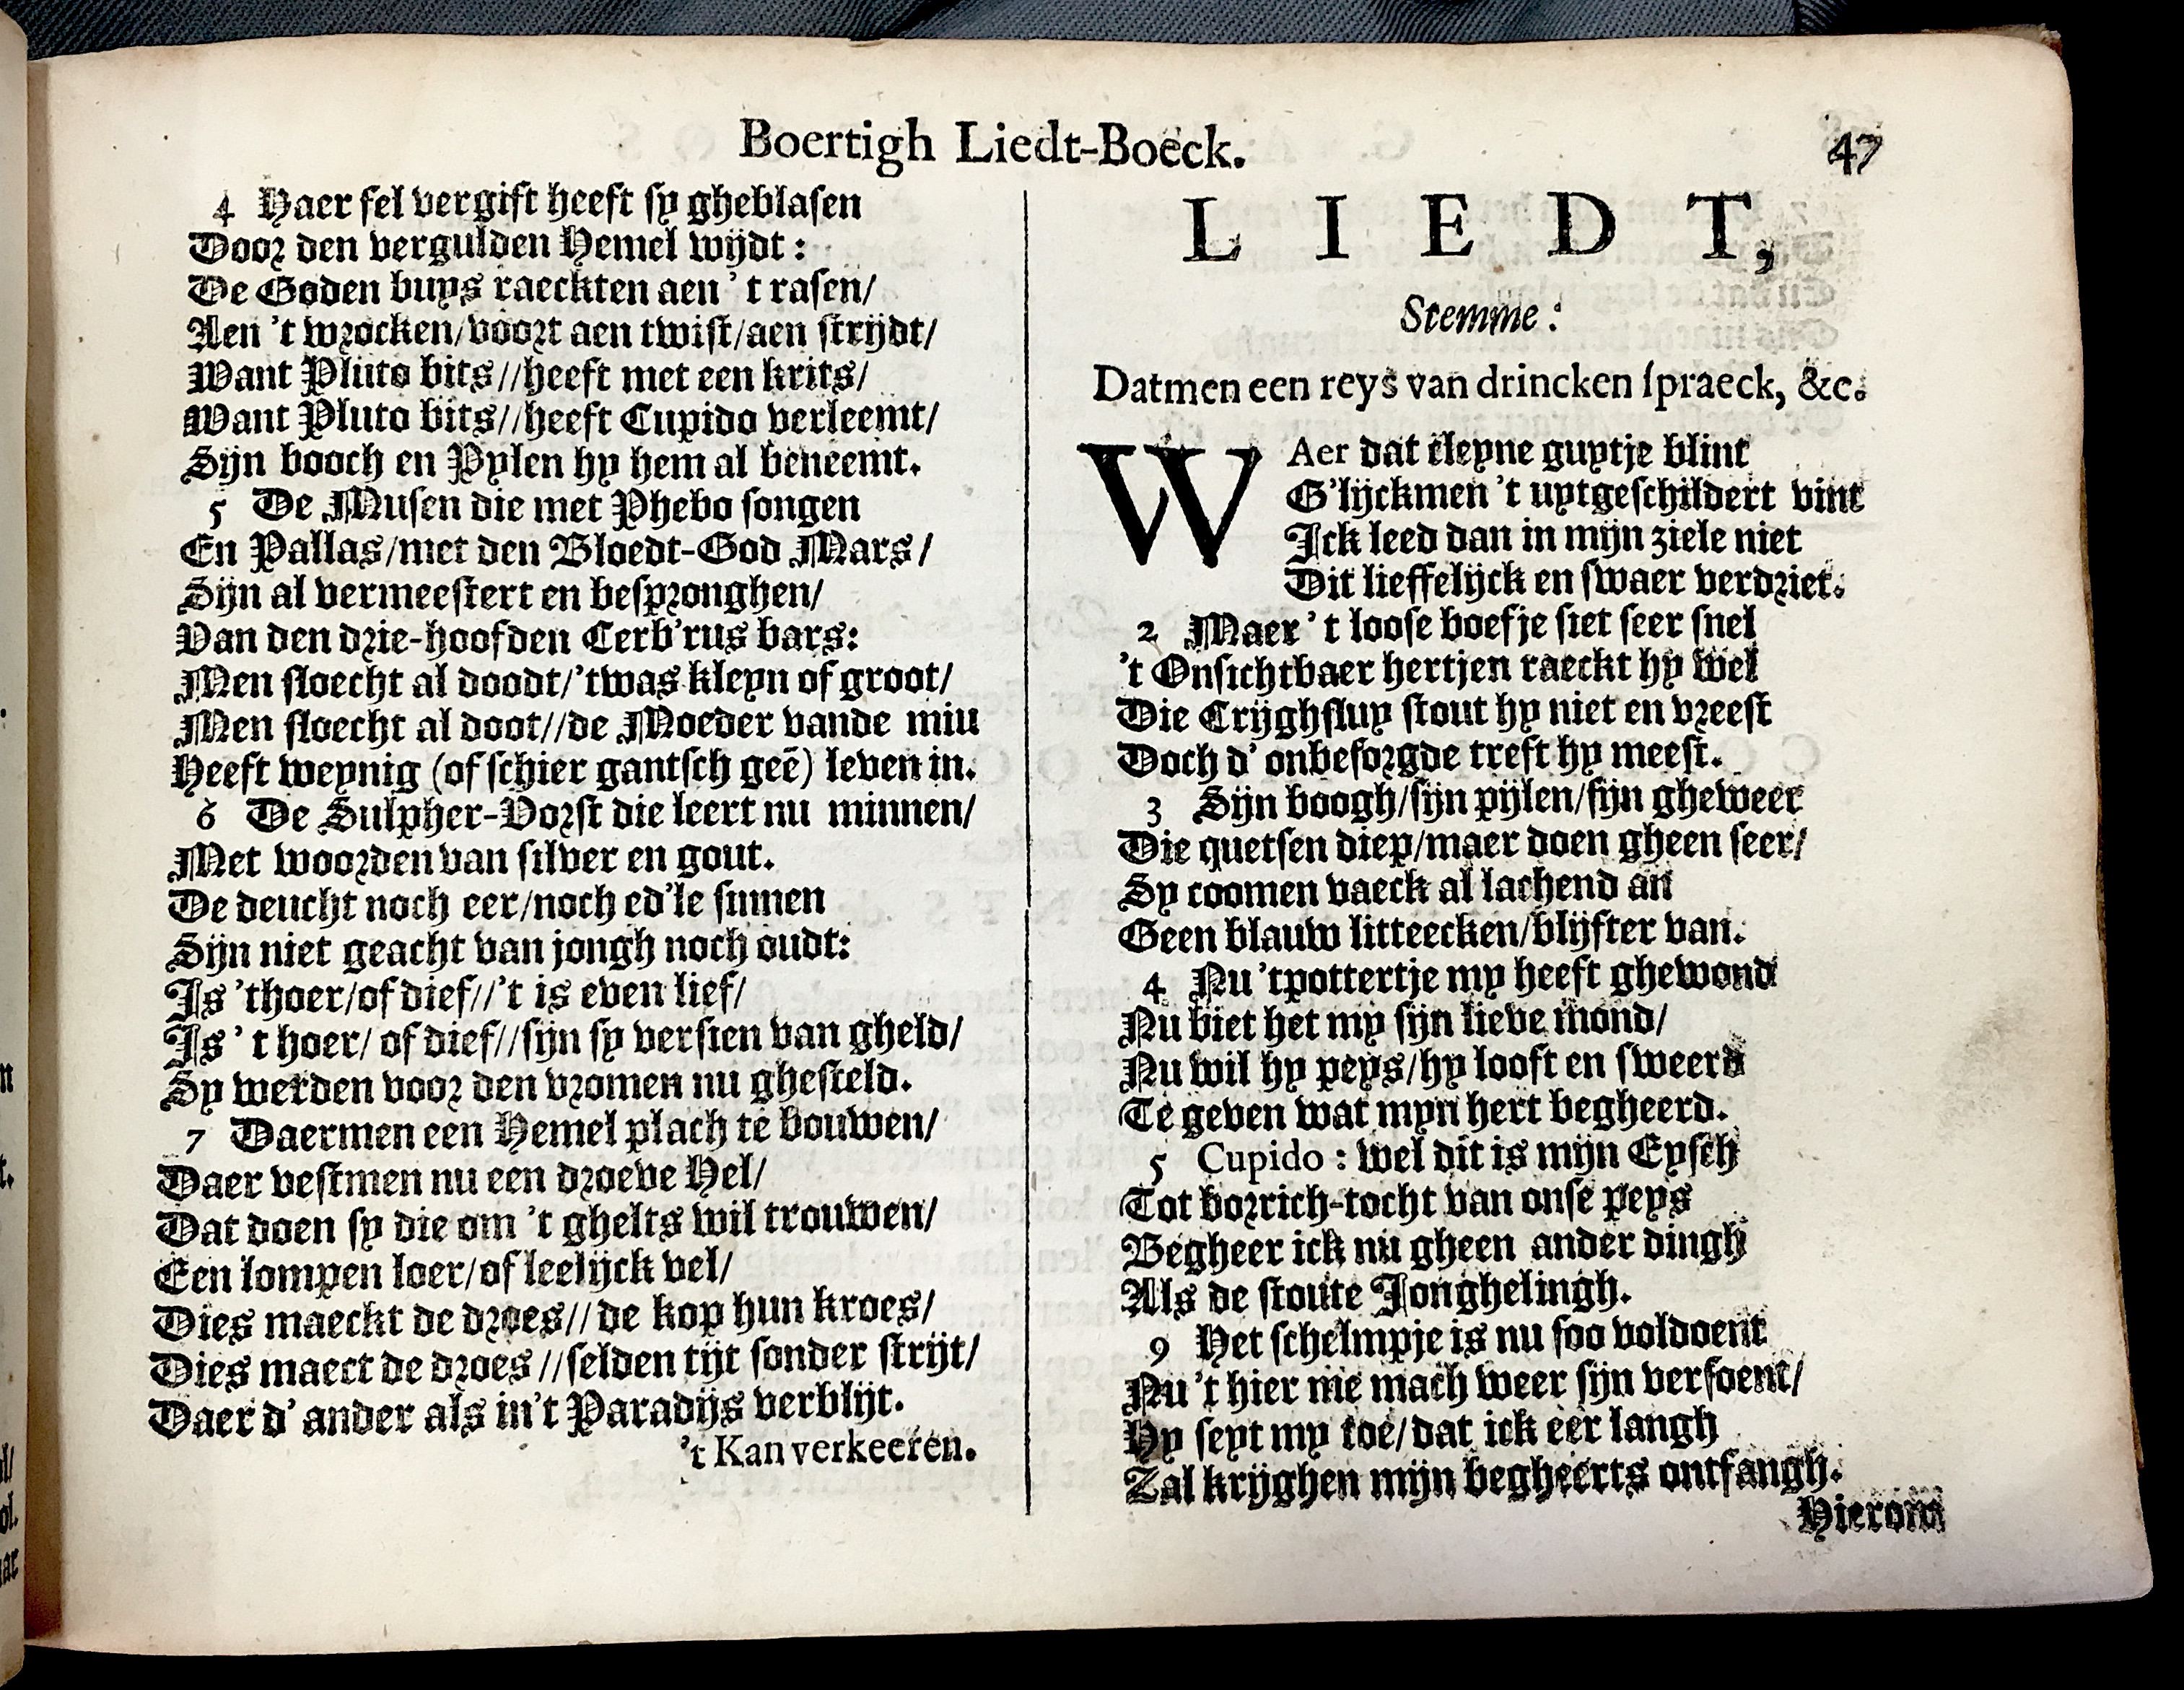 Boertigh Liedt-Boeck. 47
4 Haer fel vergift heeft sy gheblasen
Door den vergulden Hemel wijdt:
De Goden buys raeckten aen 't rasen/
Aen 't wrocken/voort aen twist/aen strijdt/
Want Pluto bits//heeft met een krits/
Want Pluto bits//heeft Cupido verleemt/
Sijn booch en Pylen hy hem al beneemt.
5 De Musen die met Phebo songen
En Pallas/met den Bloedt-God Mars/
Sijn al vermeestert en bespronghen/
Van den drie-hoofden Cerb'rus bars:
Men sloecht al doodt/'twas kleyn of groot/
Men sloecht al doot//de Moeder vande min
Heeft weynig (of schier gantsch geē) leven in.
6 De Sulpher-Vorst die leert nu minnen/
Met woorden van silver en gout.
De deucht noch eer/noch ed'le sinnen
Sijn niet geacht van jongh noch oudt:
Is 'thoer/of dief//'t is even lief/
Is 't hoer/ of dief//sijn sy versien van gheld/
Sy werden voor den vromen nu ghesteld.
7 Daermen een Hemel plach te bouwen/
Daer vestmen nu een droeve Hel/
Dat doen sy die om 't ghelts wil trouwen/
Een lompen loer/of leelijck vel/
Dies maeckt de droes// de kop hun kroes/
Dies maect de droes //selden tijt sonder strijt/
Daer d' ander als in't Paradijs verblijt.
't Kan verkeeren.
LIEDT,
Stemme:
Datmen een reys van drincken spraeck, &c.
WAer dat cleyne guytje blint
G'lijckmen 't uytgeschildert vint
Ick leed dan in mijn ziele niet
Dit lieffelijck en swaer verdriet.
2 Maer 't loose boefje siet seer snel
't Onsichtbaer hertjen raeckt hy wel
Die Crijghsluy stout hy niet en vreest
Doch d' onbesorgde treft hy meest.
3 Sijn boogh/sijn pijlen/sijn gheweer
Die quetsen diep/maer doen gheen seer/
Sy coomen vaeck al lachend an
Geen blauw litteecken/blijfter van.
4 Nu 'tpottertje my heeft ghewond
Nu biet het my sijn lieve mond/
Nu wil hy peys/hy looft en sweerd
Te geven wat myn hert begheerd.
5 Cupido: wel dit is mijn Eysch
Tot borrich-tocht van onse peys
Begheer ick nu gheen ander dingh
Als de stoute Jonghelingh.
9 Het schelmpje is nu soo voldoent
Nu 't hier me mach weer sijn versoent/
Hy seyt my toe/dat ick eer langh
Zal krijghen mijn begheerts ontfangh.
Hierom